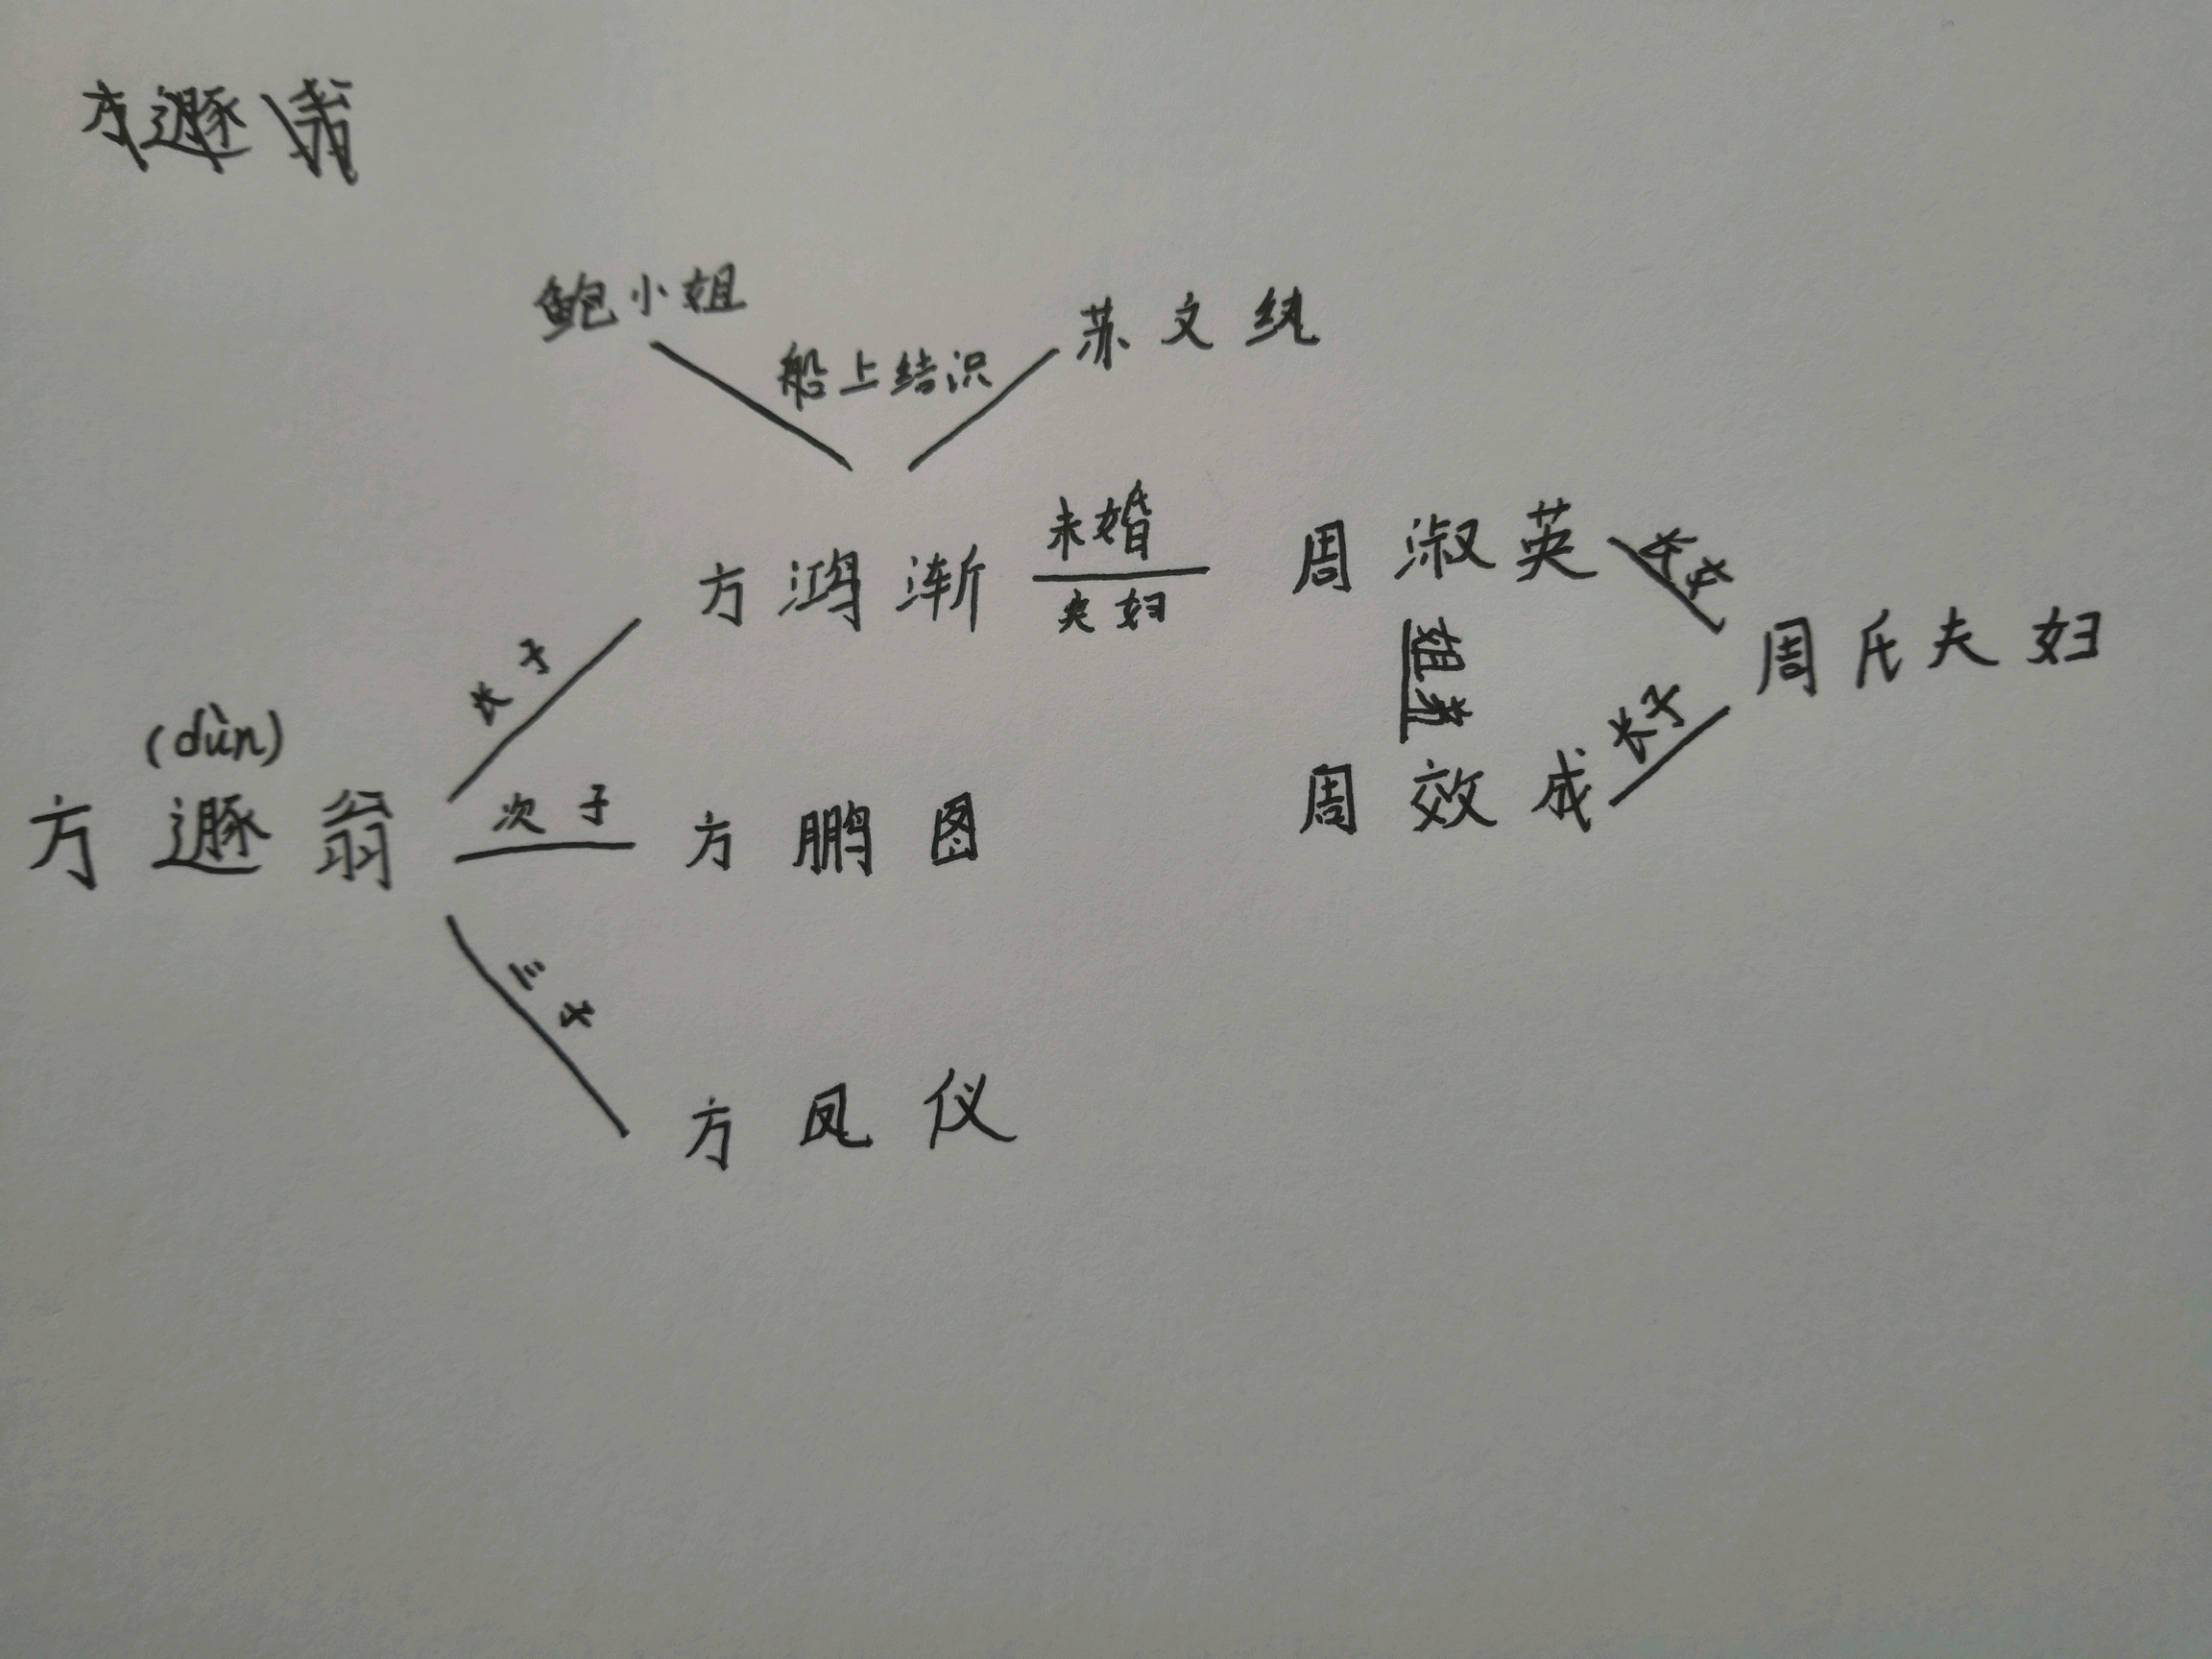 方遯翁
鲍小姐
船上结识
苏文纨
方鸿渐
未婚
夫妇
周淑英
长女
周氏夫妇
长子
姐弟
(dùn)
方遯翁
次子
方鹏图
周效成
长子
三子
方凤仪